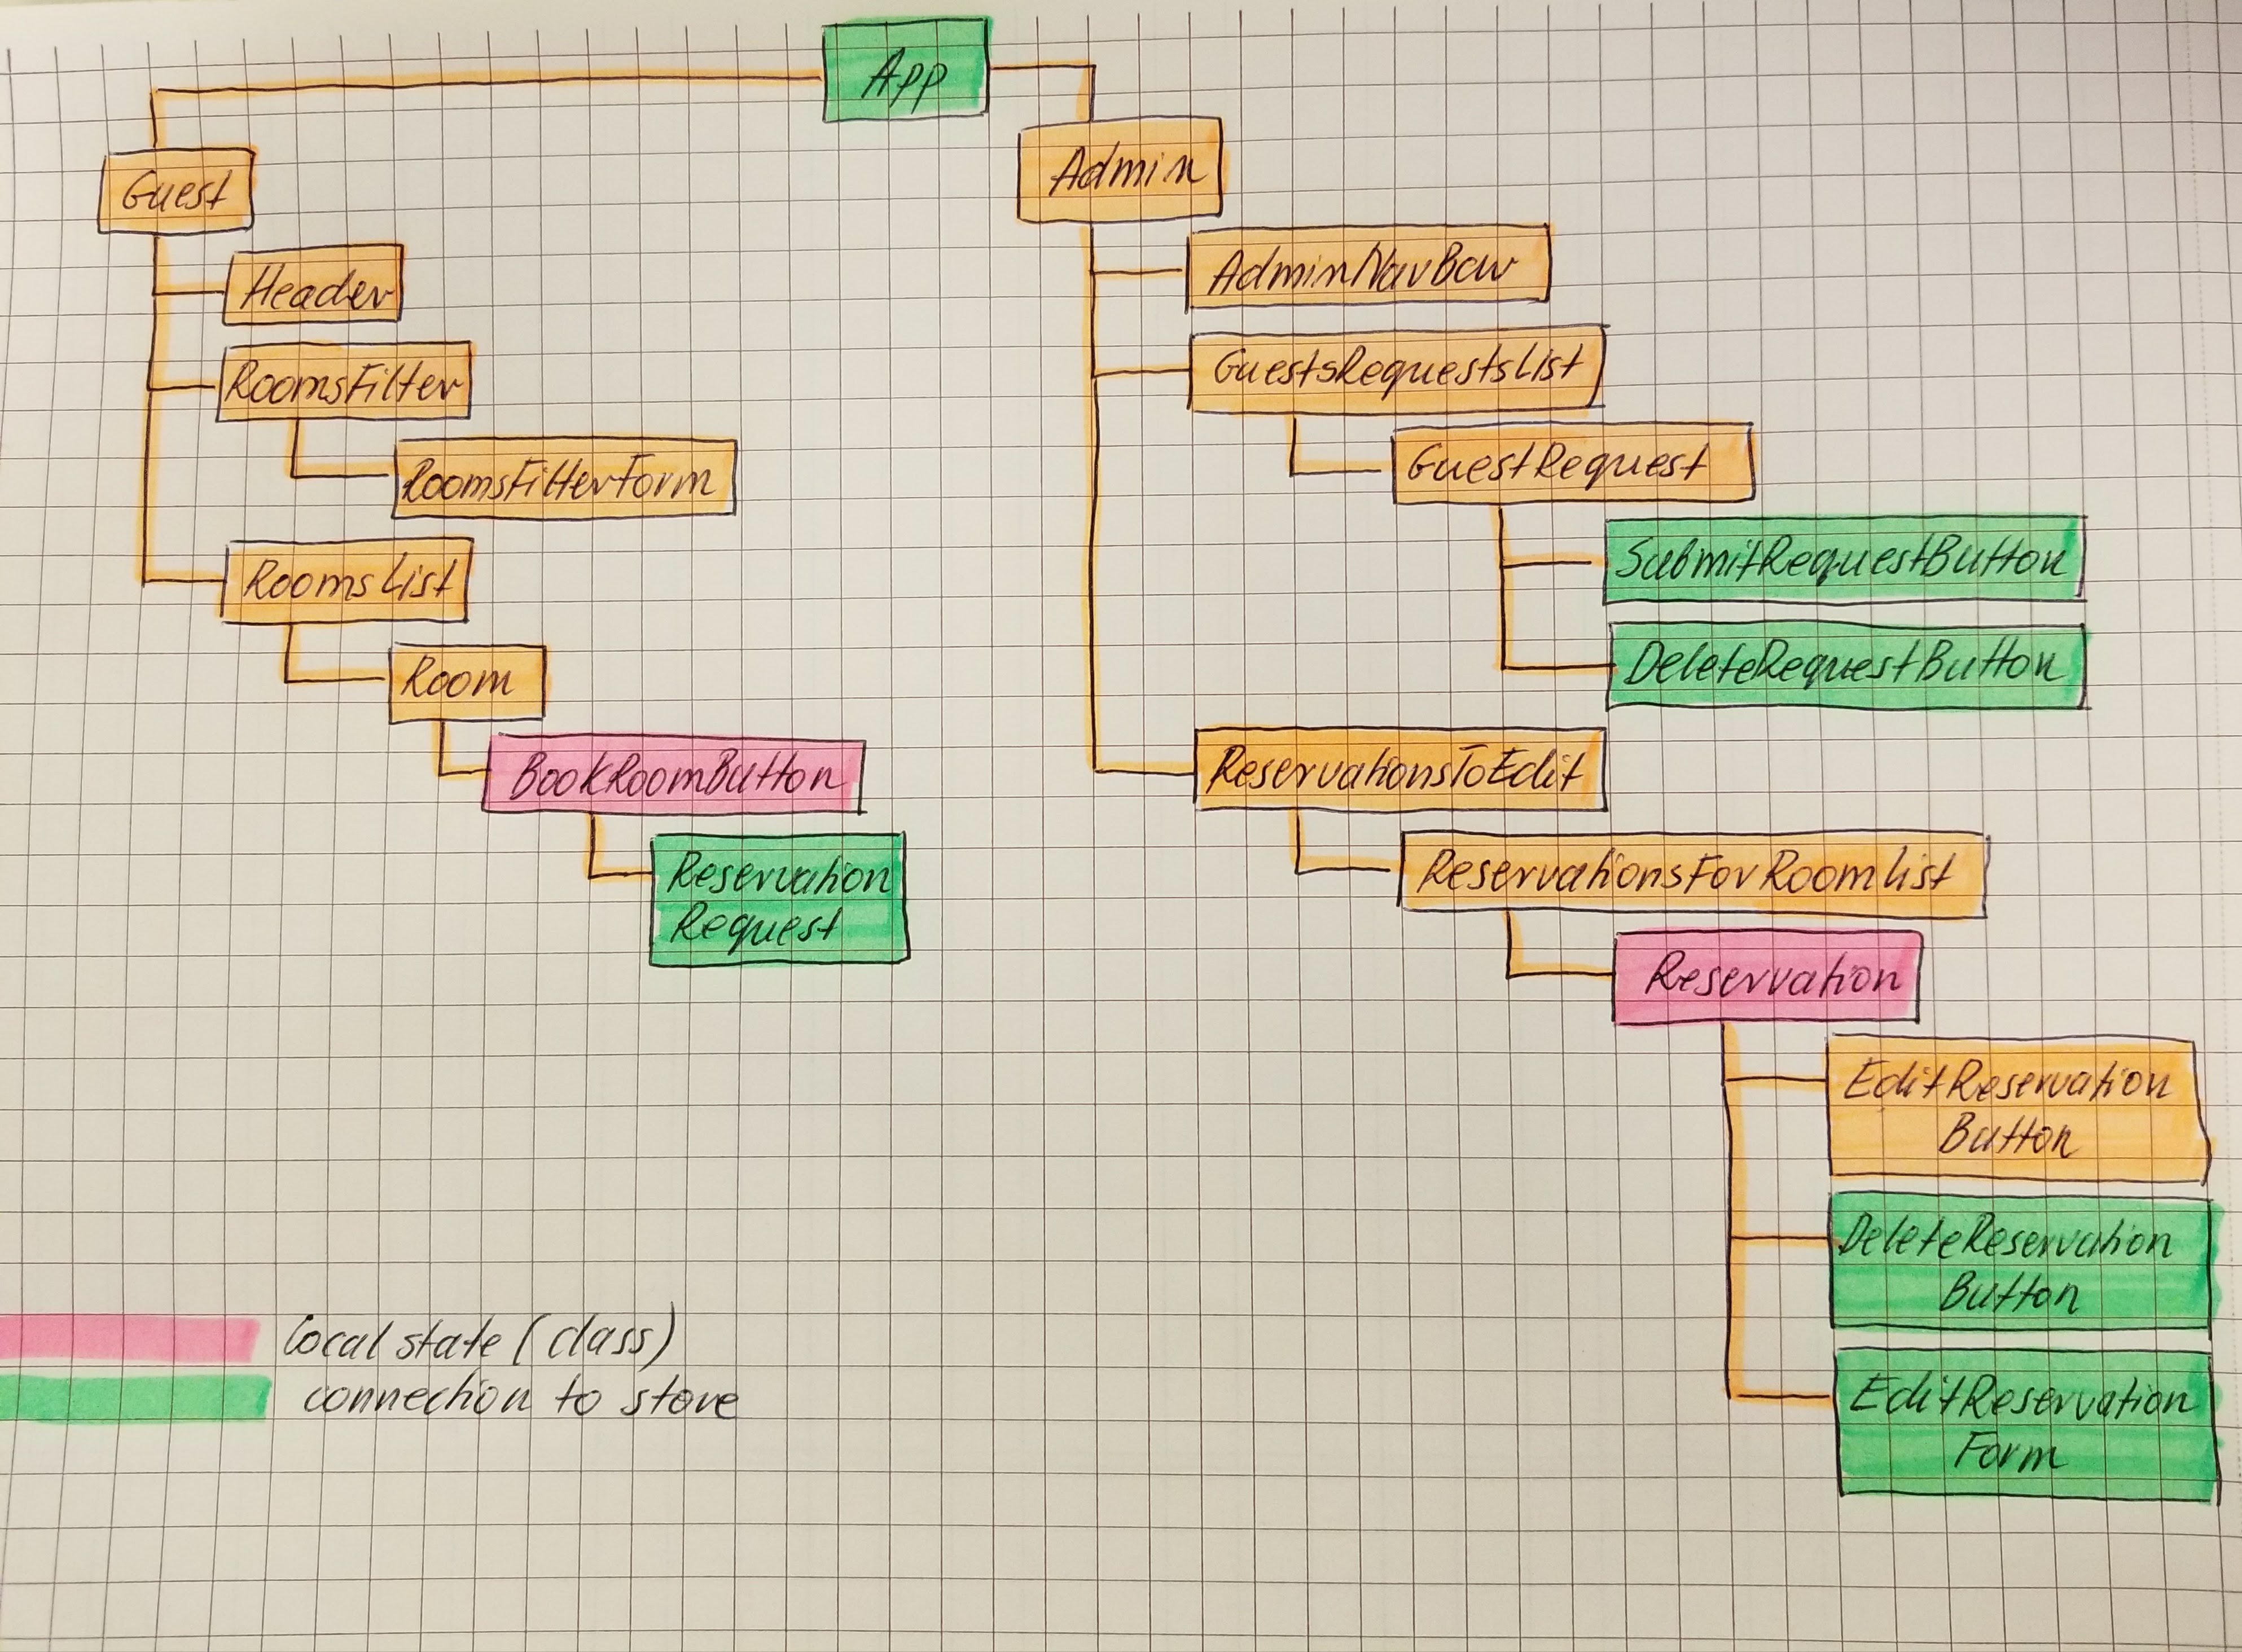 App
Guest
Header
RoomsFilter
RoomsFilterForm
RoomsList
Room
BookRoomButton
Reservation
Request
Admin
AdminNavBar
GuestsRequestsList
GuestRequest
SubmitRequestButton
DeleteRequestButton
ReservationsToEdit
ReservationsForRoomList
Reservation
EditReservation
Button
DeleteReservation
Button
EditReservation
Form
local state (class)
connection to store